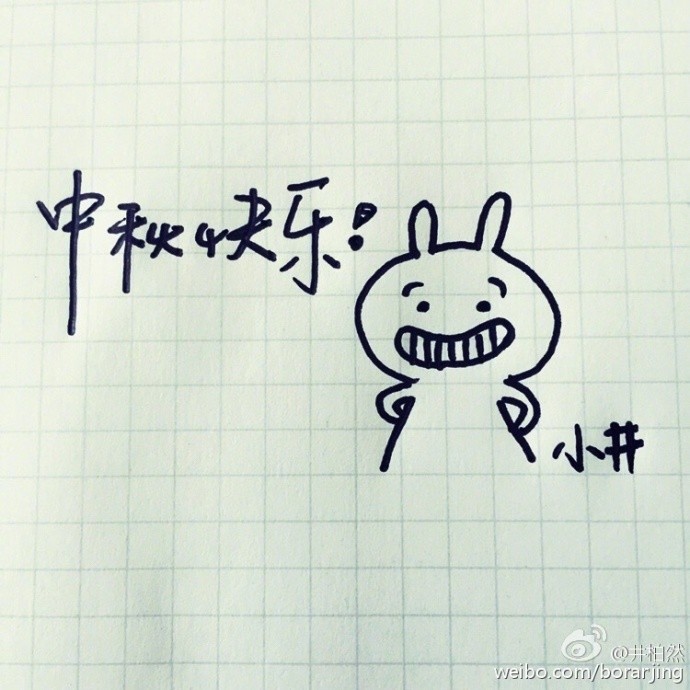 中秋快乐!
小井
@井柏然
weibo.com/borarjing